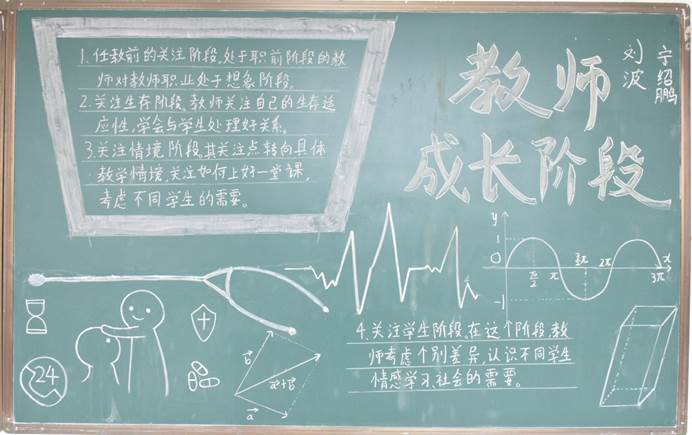 教师
成长阶段
刘波
宁绍鹏
1.任教前的关注阶段,处于职前阶段的教
师对教师职业处于想象阶段。
2.关注生存阶段。教师关注自己的生存适
应性,学会与学生处理好关系。
3.关注情境阶段,其关注点转向具体
教学情境,关注如何上好一堂课,
考虑不同学生的需要。
y
1
0
-1
π/2
π
3π/2
2π
3π
x
4.关注学生阶段,在这个阶段,教
师考虑个别差异,认识不同学生
情感学习,社会的需要。
24
b
a+b
a